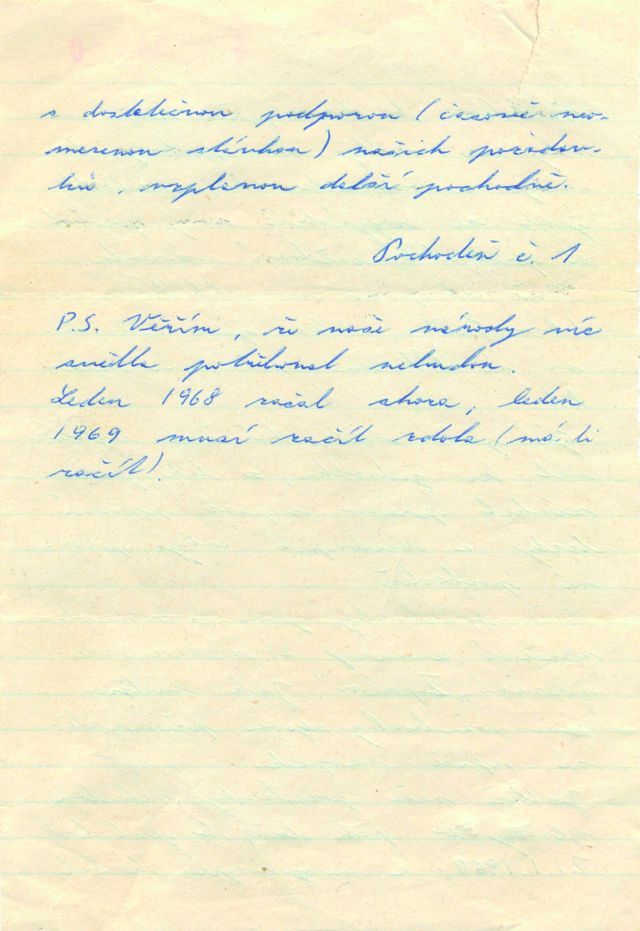 s dostatečnou podporou (časově neo-
mezenou stávkou) našich požadav-
ků, vzplanou další pochodně.
Pochodeň č. 1
P.S. Věřím, že naše národy víc
světla potřebovat nebudou.
Leden 1968 začal shora, leden
1969 musí začít zdola (má-li
začít).